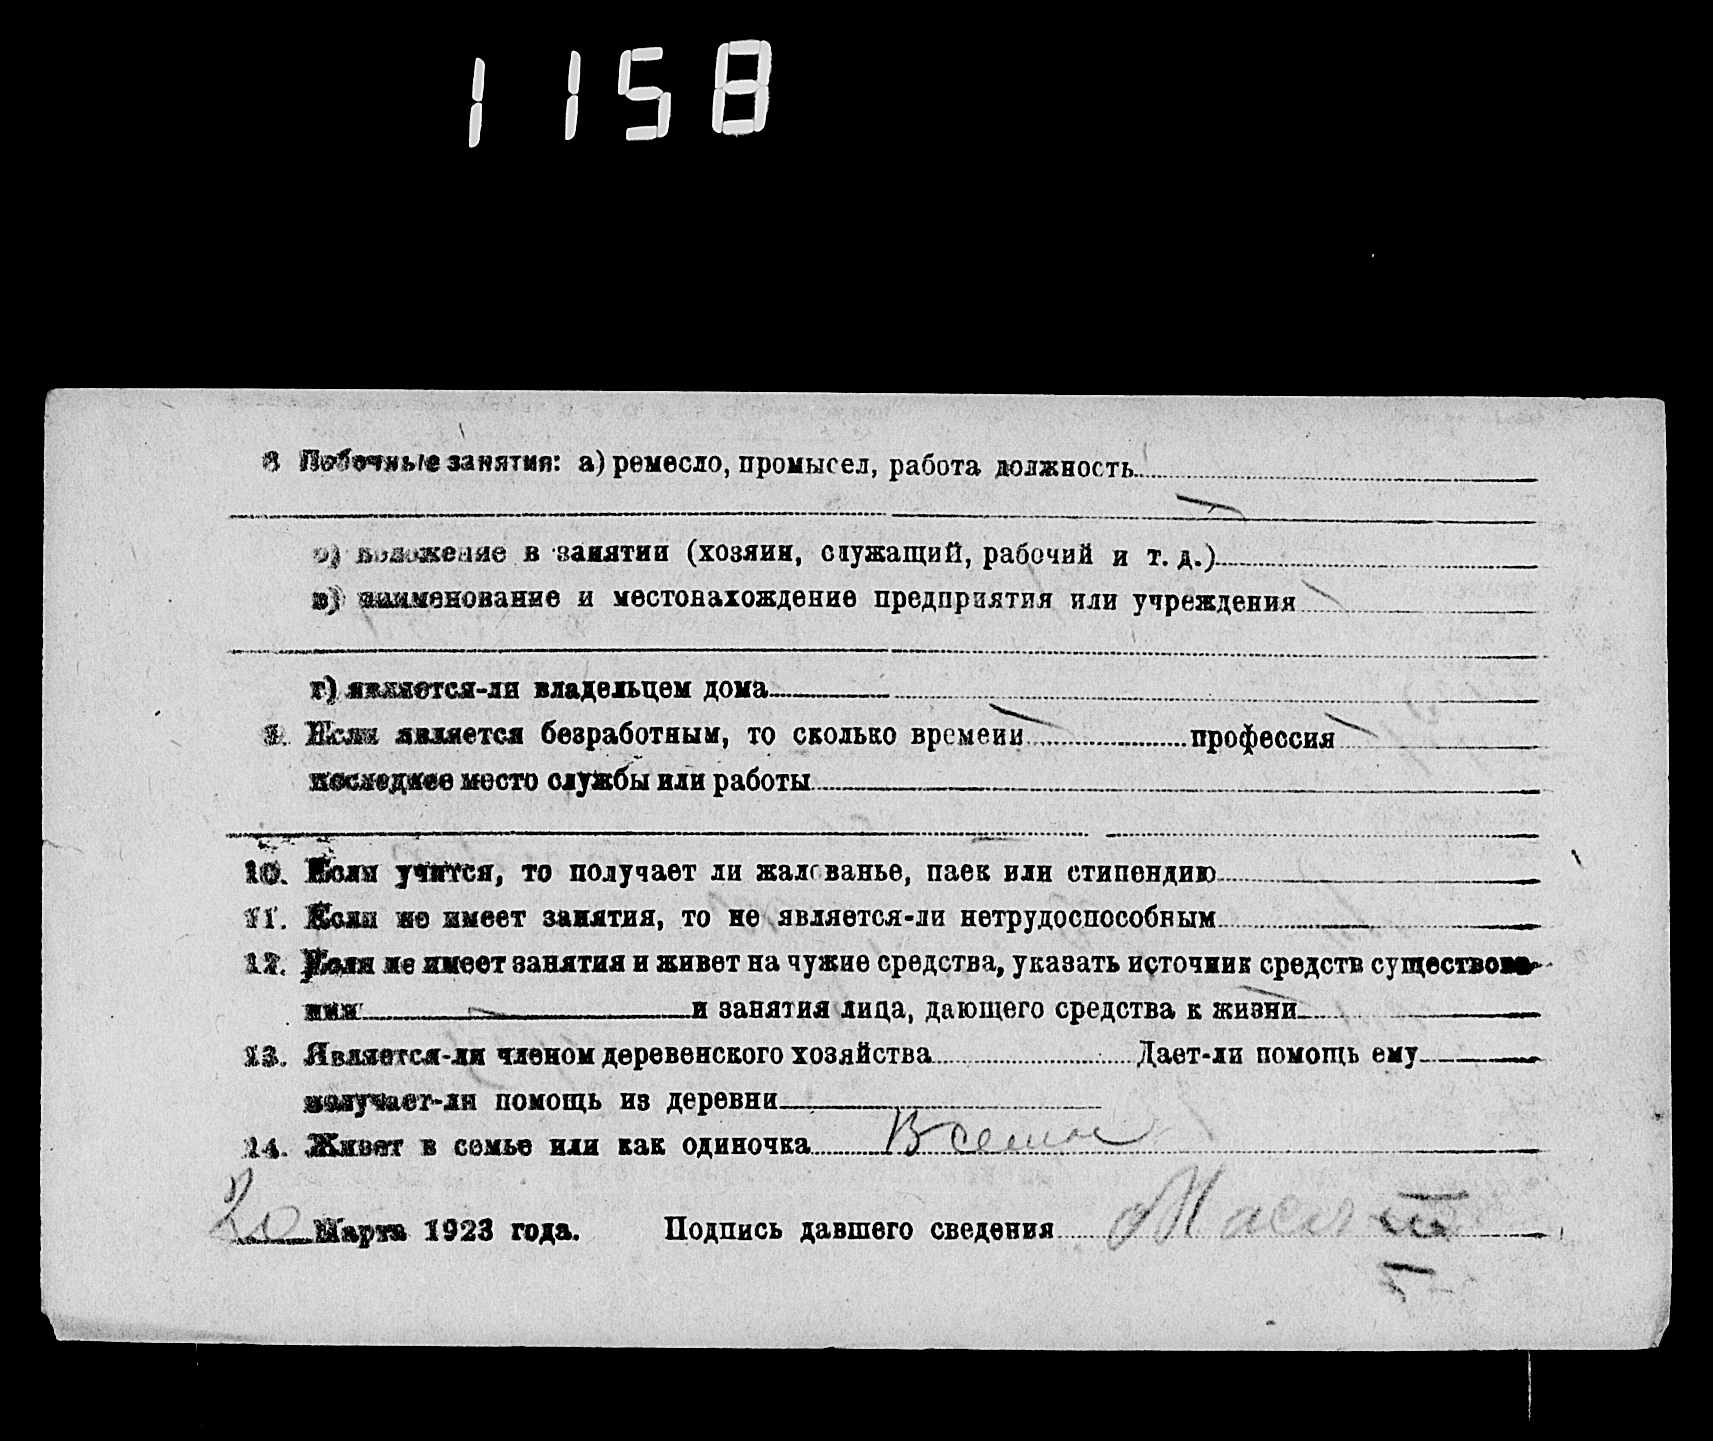 1158
8 Побочные занятия: а) ремесло, промысел, работа должность
б) положение в занятии (хозяин, служащий, рабочий и т. д.)
в) наименование и местонахождение предприятия или учреждения
г) является-ли владельцем дома
9. Если является безработным, то сколько времени профессия
последнее место службы или работы
10. Если учится, то получает ли жалованье, паек или стипендию
11. Если не имеет занятия, то не является-ли нетрудоспособным
12. Если не имеет занятия и живет на чужие средства, указать источник средств существова-
ния и занятия лица, дающего средства к жизни
13. Является-ли членом деревенского хозяйства Дает-ли помощь ему
получает-ли помощь из деревни
14. Живет в семье или как одиночка В семье
20 Марта 1923 года. Подпись давшего сведения